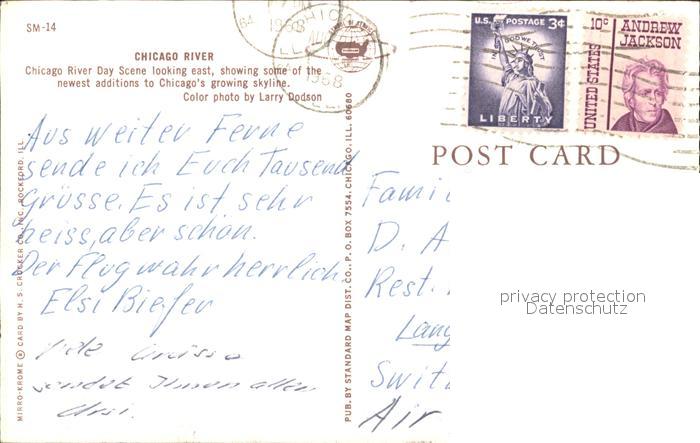 SM-14
CHICAGO RIVER
Chicago River Day Scene looking east, showing some of the
newest additions to Chicago's growing skyline.
Color photo by Larry Dodson
Aus weiter Ferne
sende ich Euch Tausend
Grüsse. Es ist sehr
heiss, aber schön.
Der Flug wahr herrlich.
Elsi Biefer
sendet Ihnen allen
Ursi.
MIRRO-KROME ® CARD BY H. S. CROCKER CO., INC., ROCKFORD, ILL.
PUB. BY STANDARD MAP DIST. CO., P. O. BOX 7554, CHICAGO, ILL. 60680
1968
1968
U.S. POSTAGE 3¢
IN GOD WE TRUST
LIBERTY
10¢ ANDREW
JACKSON
UNITED STATES
POST CARD
Famil
D. A
Rest.
Lang
Switz
Air
privacy protection
Datenschutz